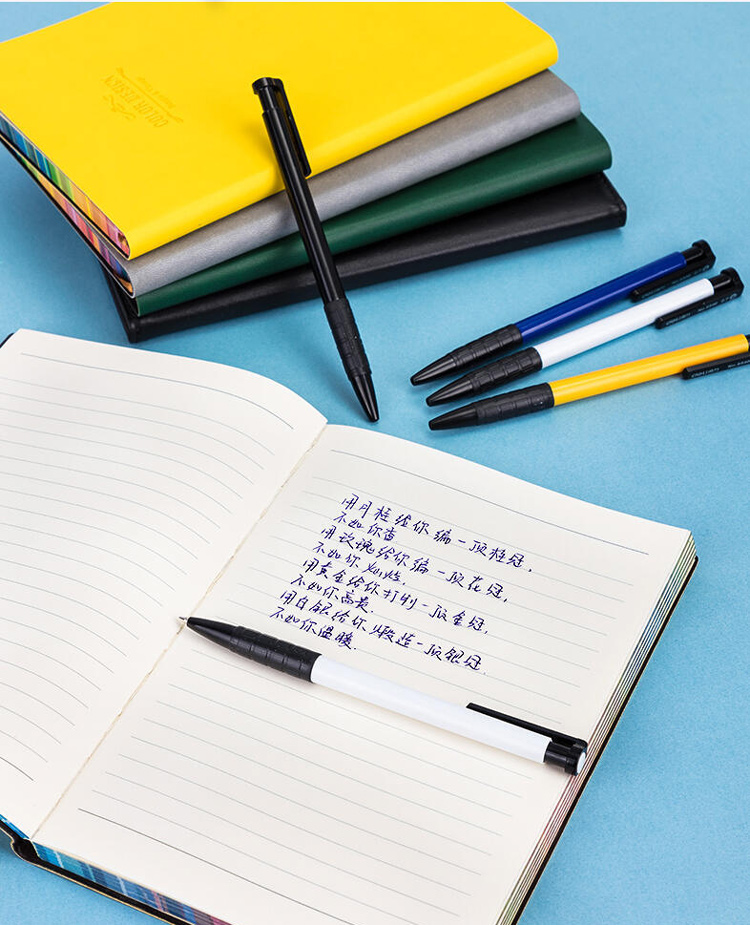 COLOR DESIGN
用月桂给你编一顶桂冠,
不如你香.
用玫瑰给你编一顶花冠,
不如你灿烂.
用黄金给你打制一顶金冠,
不如你高贵.
用白银给你煅造一顶银冠.
不如你温暖.